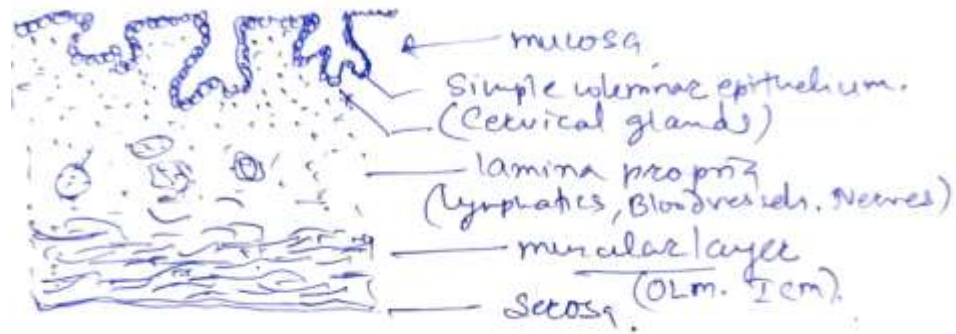 mucosa
Simple columnar epithelium.
(Cervical glands)
lamina propria
(lymphatics, Bloodvessels. Nerves)
muscular layer
(OLm. Icm).
Serosa.